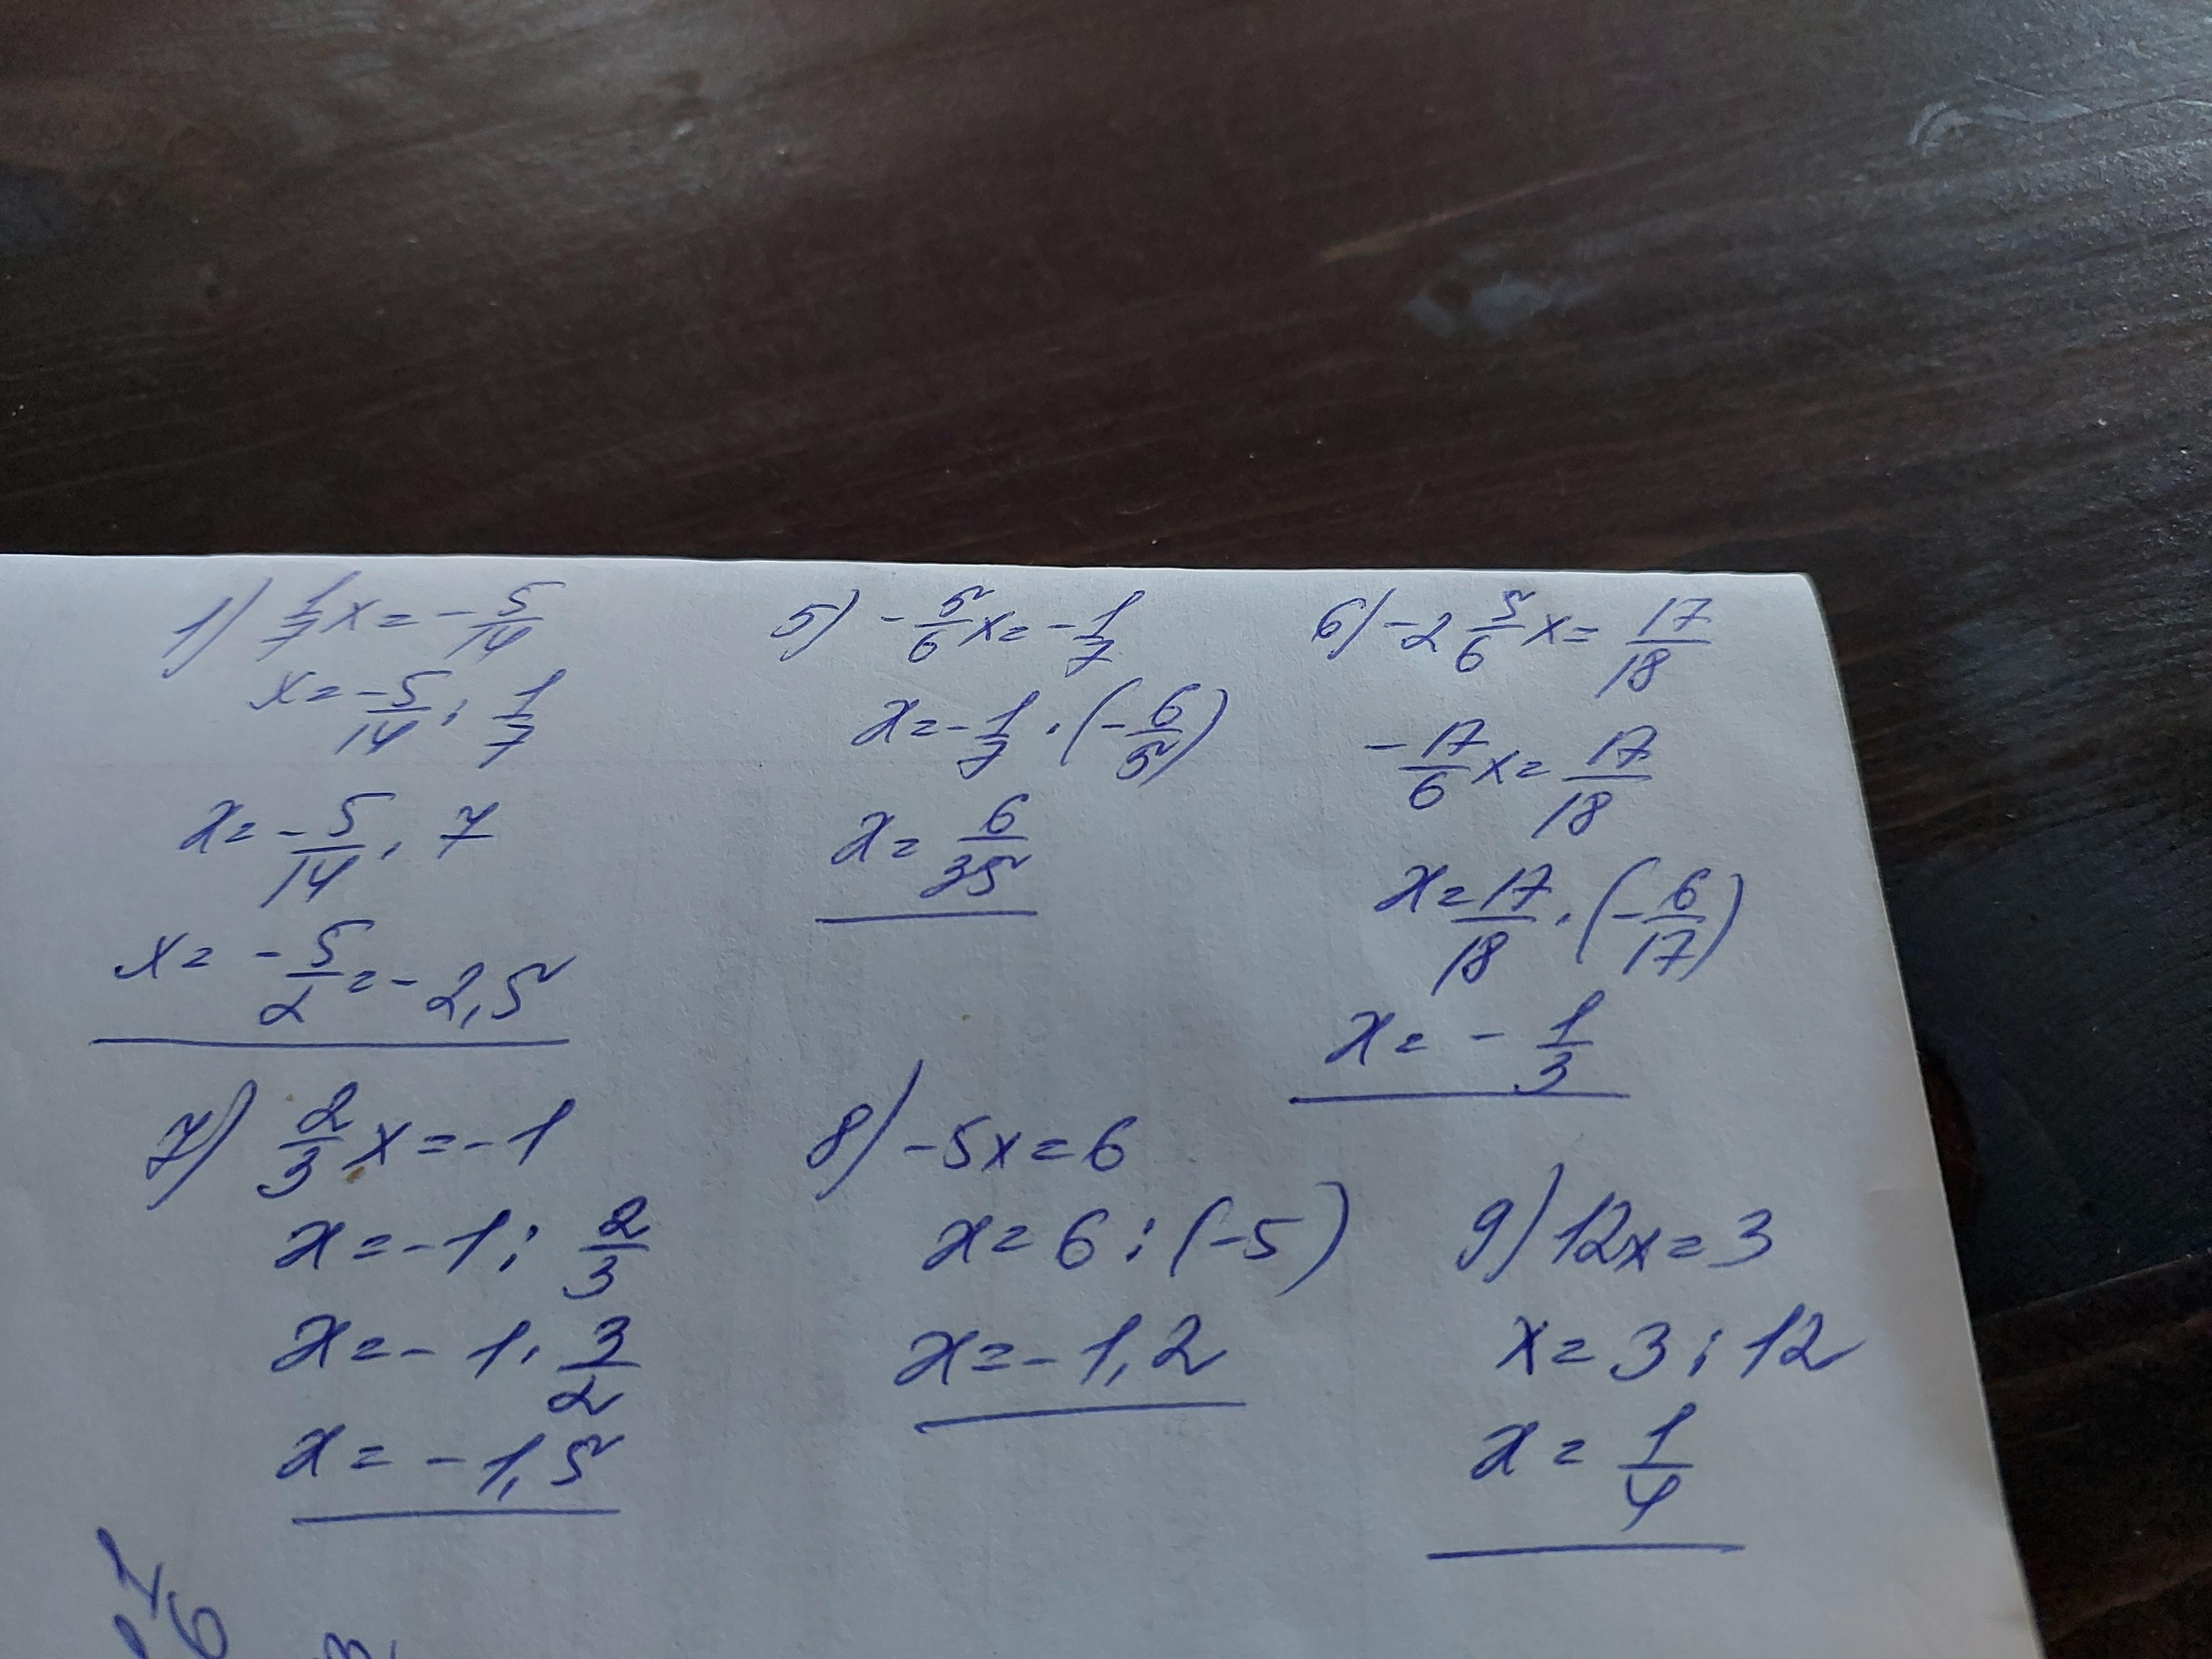 1) 1/7 x = - 5/14
x = - 5/14 : 1/7
x = - 5/14 · 7
x = - 5/2 = - 2,5
5) - 5/6 x = - 1/7
x = - 1/7 · (- 6/5)
x = 6/35
6) - 2 5/6 x = 17/18
- 17/6 x = 17/18
x = 17/18 · (- 6/17)
x = - 1/3
7) 2/3 x = - 1
x = - 1 : 2/3
x = - 1 · 3/2
x = - 1,5
8) - 5x = 6
x = 6 : (-5)
x = - 1,2
9) 12x = 3
x = 3 : 12
x = 1/4